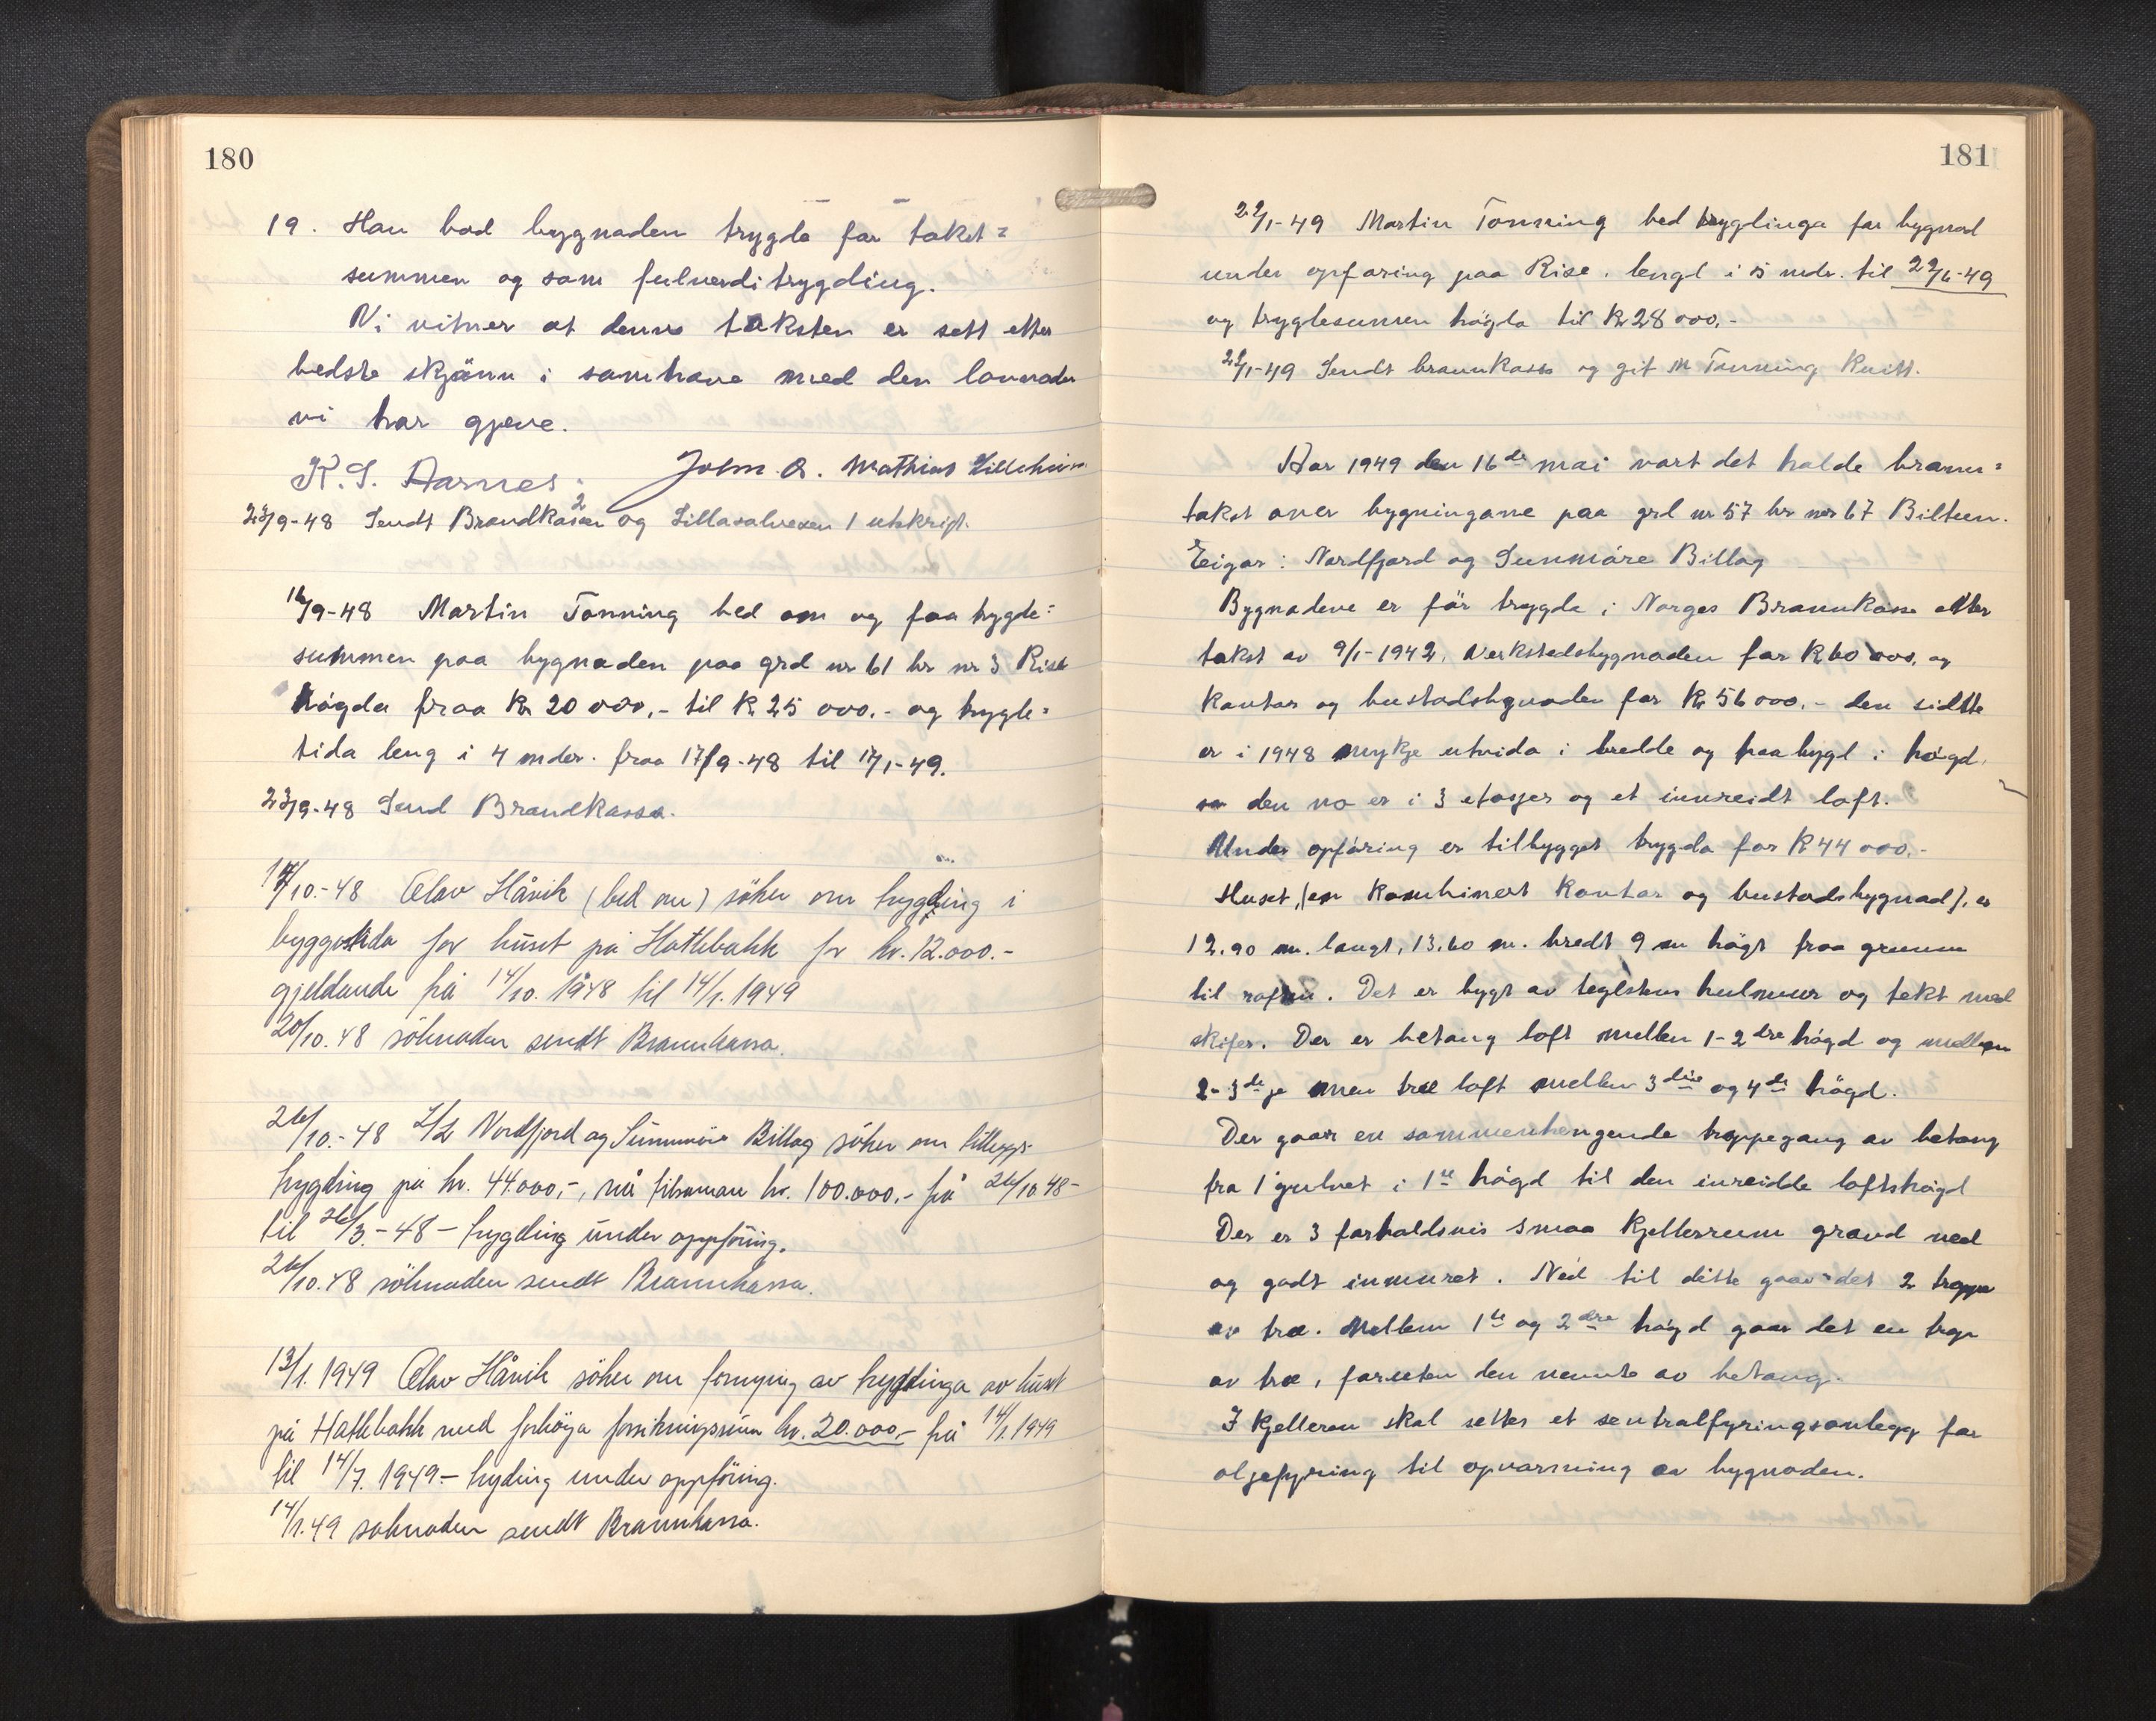 180
19. Han bad bygnaden trygda for takst=
summen og som fulverditrygding.
Vi vitner at denne taksten er sett etter
bedste skjönn i samhave med den lovnader
vi har gjeve.
K. S. Aarnes. John A. Mathias Lilleheim
23/9-48 Sendt Brandkassen og Lillasalvesen 1 utskrift.
16/9-48 Martin Tonning bed om og faa trygde=
summen paa bygnaden paa grd nr 61 br nr 3 Rise
högda fraa Kr 20 000.- til Kr 25 000.- og trygde=
tida leng i 4 mder. fraa 17/9-48 til 17/1-49.
23/9-48 Send Brandkassa.
14/10.-48 Olav Håvik (bed om) söker om trygding i
byggetida for huset på Hatlebakk for kr. 12.000.-
gjeldande frå 14/10. 1948 til 14/1. 1949
20/10.48 söknaden sendt Brannkassa.
26/10.-48 L/L Nordfjord og Sunnmöre Billag söker om tilleggs-
trygding på kr. 44.000,-, nå tilsaman kr. 100.000.- frå 26/10 48-
til 26/3.-48 - trygding under oppföring.
26/10.48 söknaden sendt Brannkassa.
13/1. 1949 Olav Håvik söker om fornying av trygdinga av huset
på Hatlebakk med forhöya forsikringssum kr. 20.000,- frå 14/1. 1949
til 14/7. 1949 - tryding under oppföring.
14/1.49 söknaden sendt Brannkassa.
181
22/1-49 Martin Tonning bed trygdinga for bygnad
under opföring paa Rise. lengd i 5 mdr. til 22/6-49
og trygdesummen högda til Kr 28 000.-
22/1-49 Sendt brannkassa og git M Tonning Kvitt.
Aar 1949 den 16de mai vart det halde brann=
takst over bygningane paa grd nr 57 br nr 67 Bilteen.
Eigar: Nordfjord og Sunmöre Billag
Bygnadene er för trygda i Norges Brannkasse etter
takst av 9/1-1942. Verkstedsbygnaden for Kr 60 000. og
Kontor og bustadsbygnaden for Kr 56 000.- den sidste
er i 1948 mykje utvida i bredde og paabygd i högd.
so den no er i 3 etasjer og et innreidt loft.
Under opföring er tilbygget trygda for Kr 44 000.-
Huset, (en Kombinert Kontor og bustadsbygnad), er
12.90 m. langt, 13.60 m. bredt 9 m högt fraa grunn
til raften. Det er bygt av teglstens hulmur og tekt med
skifer. Der er betong loft mellem 1-2dre högd og mellem
2-3dje men træ loft mellem 3die og 4de högd.
Der gaar en sammenhengende trappegang av betong
fra 1 gulvet i 1ste högd til den inreidde loftshögd
Der er 3 forholdsvis smaa Kjellerrum gravd ned
og godt inmuret. Ned til ditte gaar det 2 trappe
av træ. Mellem 1te og 2dre högd gaar det en trap
av træ, foruten den nemnte av betong.
I Kjelleren skal settes et sentralfyringsanlegg for
oljefyring til opvarming av bygnaden.